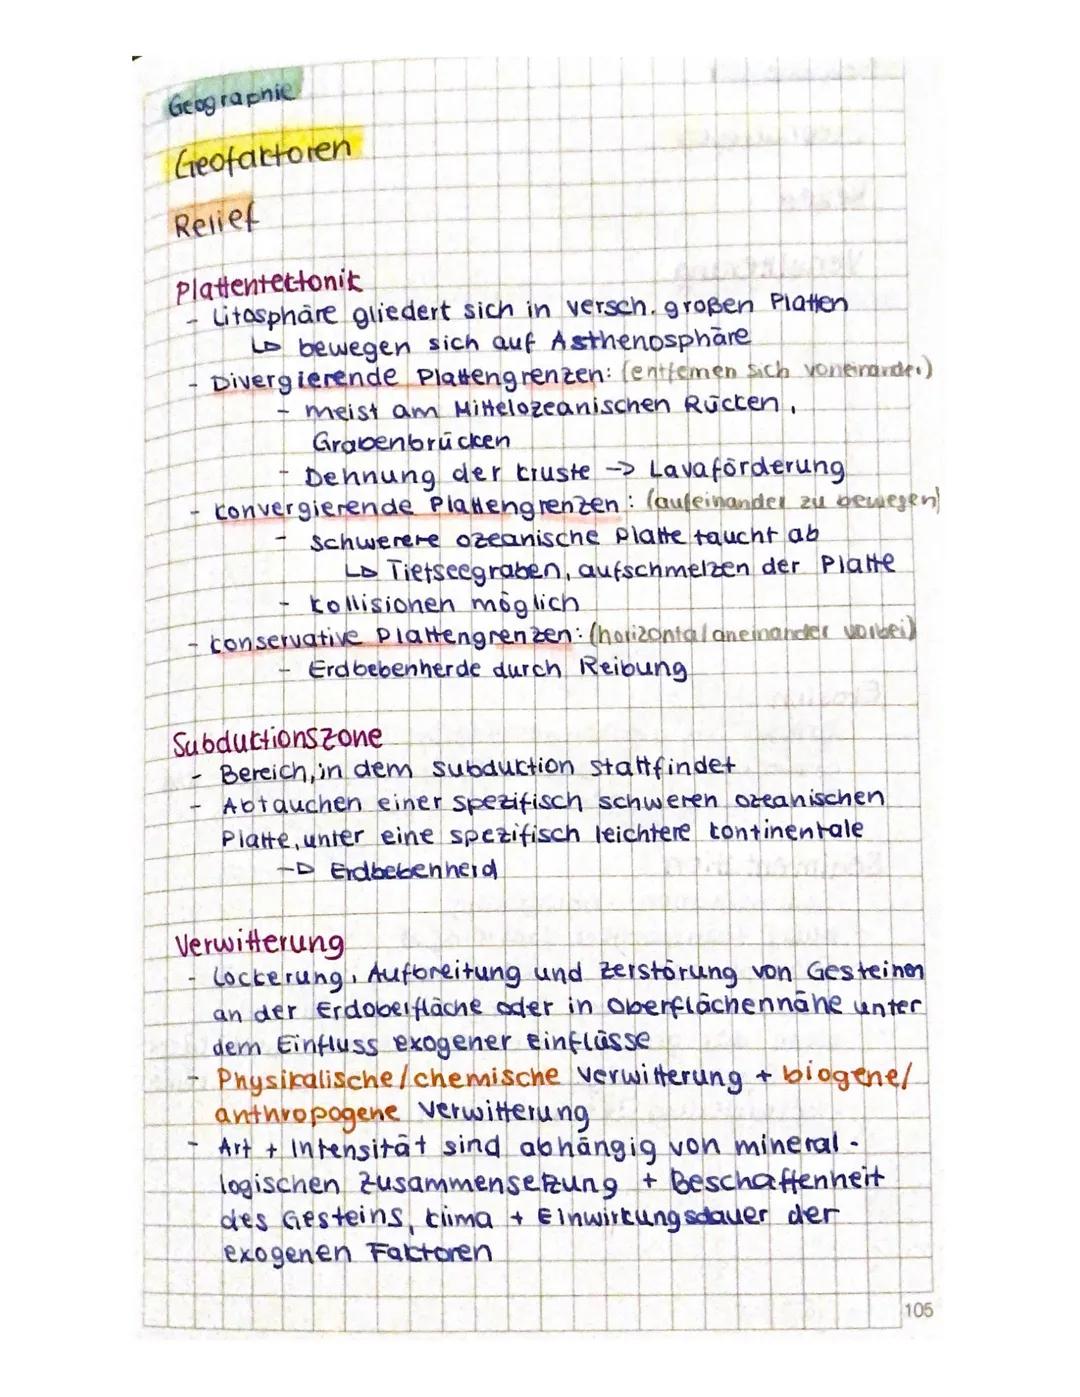 Geographie
Geofaktoren
Relief
Plattentektonik
- Litosphäre gliedert sich in versch. großen Platten
↳ bewegen sich auf Asthenosphäre
- Divergierende Plattengrenzen: (entfernen sich voneinander)
- meist am Mittelozeanischen Rücken,
Grabenbrücken
- Dehnung der Kruste → Lavaförderung
- konvergierende Plattengrenzen: (aufeinander zu bewegen)
- Schwerere ozeanische Platte taucht ab
↳ Tiefseegraben, aufschmelzen der Platte
- Kollisionen möglich
- konservative Plattengrenzen: (horizontal aneinander vorbei)
- Erdbebenherde durch Reibung
Subduktionszone
- Bereich, in dem Subduktion stattfindet
- Abtauchen einer spezifisch schweren ozeanischen
Platte, unter eine spezifisch leichtere kontinentale
→ Erdbebenherd
Verwitterung
- Lockerung, Aufbreitung und Zerstörung von Gesteinen
an der Erdoberfläche oder in Oberflächennähe unter
dem Einfluss exogener Einflüsse
- Physikalische/chemische Verwitterung + biogene/
anthropogene Verwitterung
- Art + Intensität sind abhängig von mineral-
logischen Zusammensetzung + Beschaffenheit
des Gesteins, Klima + Einwirkungsdauer der
exogenen Faktoren
105